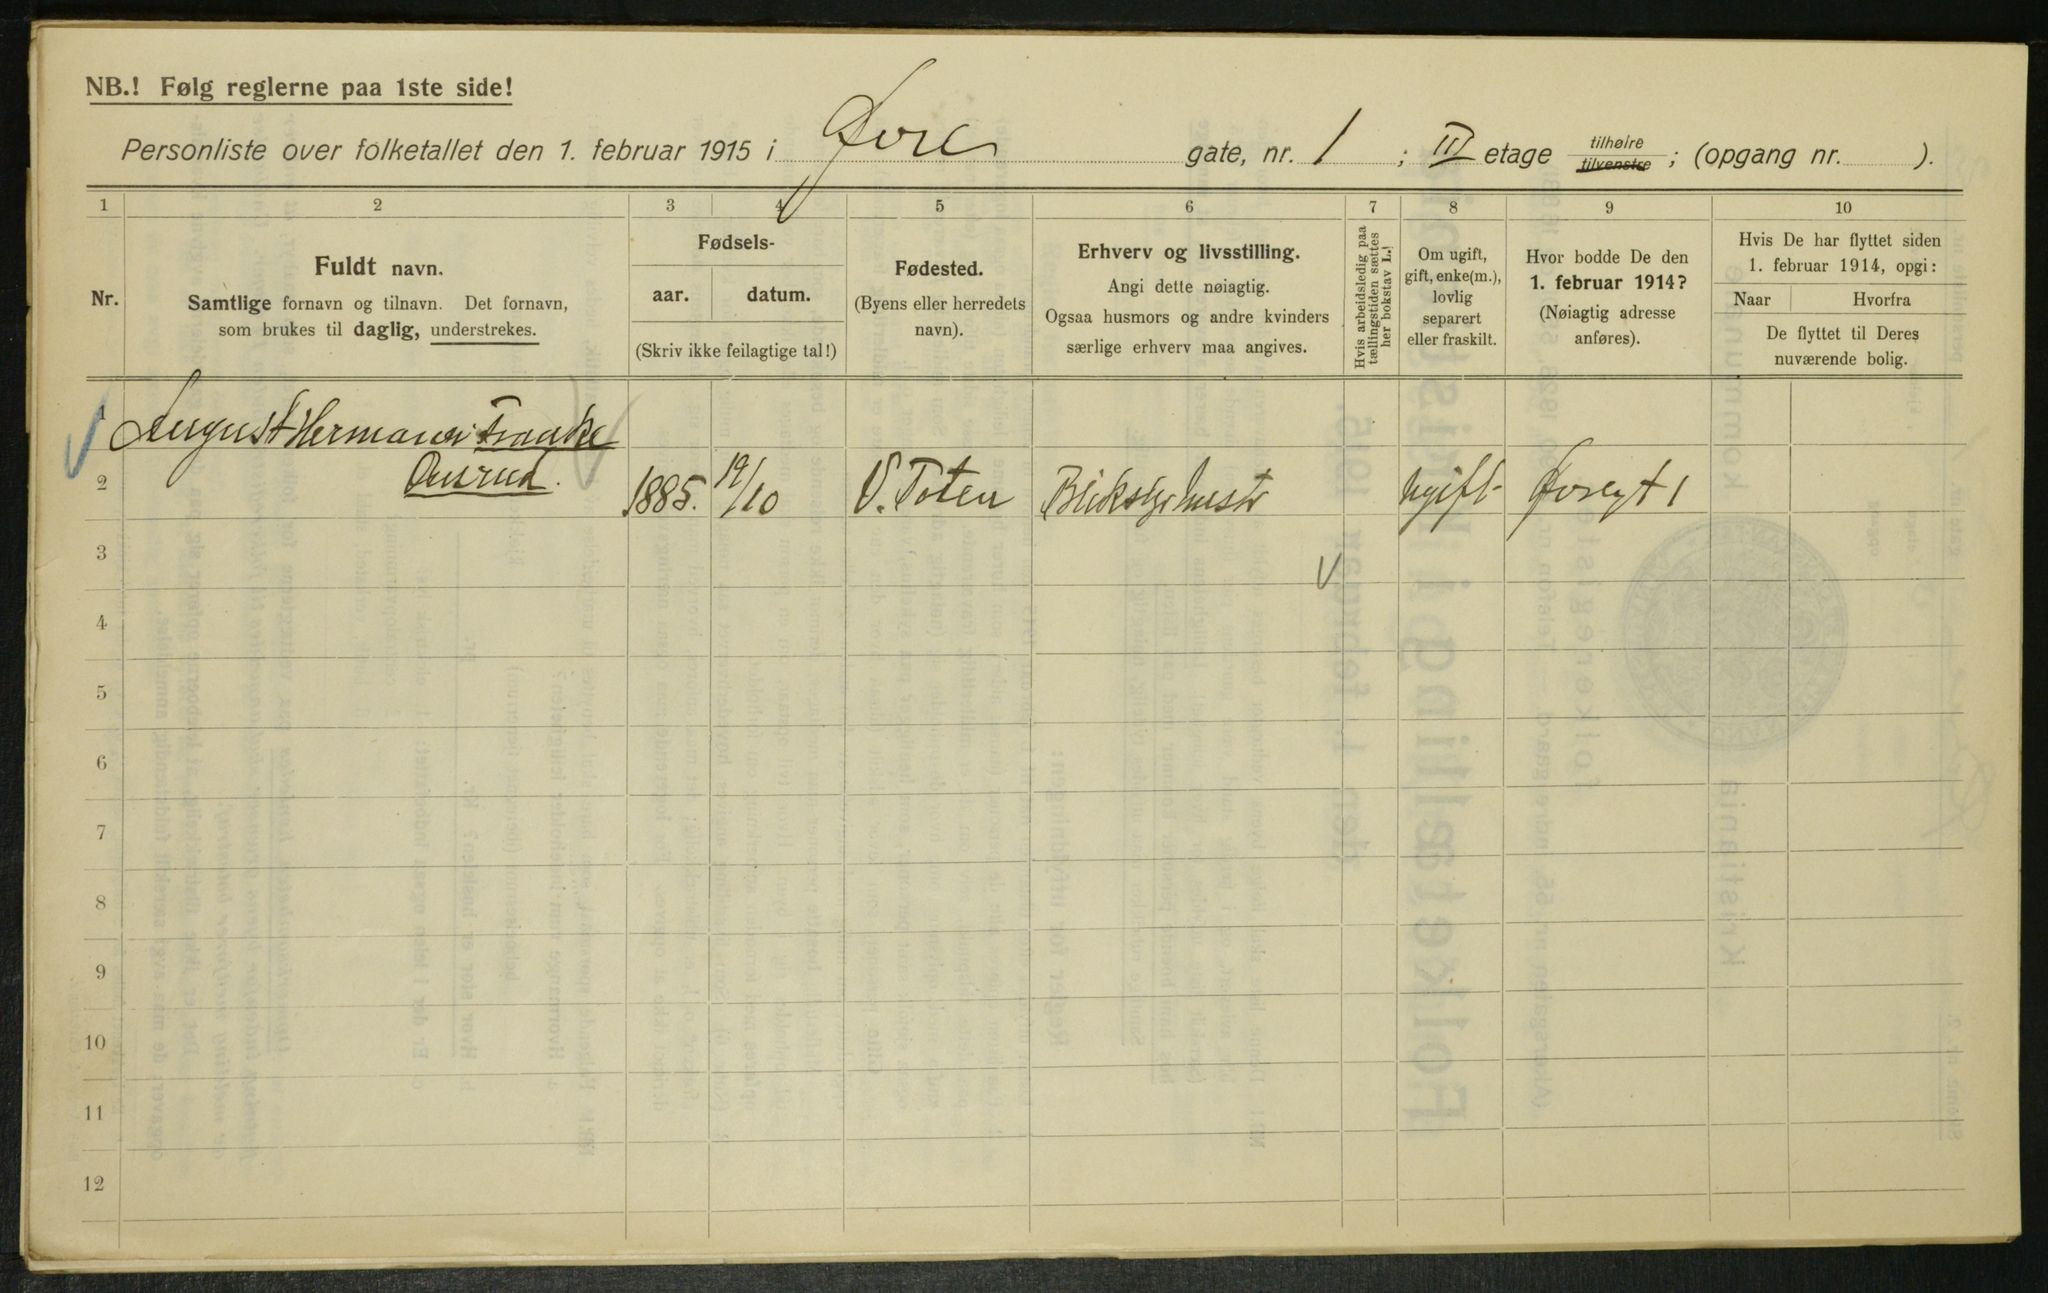 NB.! Følg reglerne paa 1ste side!
Personliste over folketallet den 1. februar 1915 i Øvre gate, nr. 1 ; III etage tilhøire tilvenstre ; (opgang nr. ).
1 2 3 4 5 6 7 8 9 10
Nr.
Fuldt navn.
Samtlige fornavn og tilnavn. Det fornavn,
som brukes til daglig, understrekes.
Fødsels-
aar. datum.
(Skriv ikke feilagtige tal!)
Fødested.
(Byens eller herredets
navn).
Erhverv og livsstilling.
Angi dette nøiagtig.
Ogsaa husmors og andre kvinders
særlige erhverv maa angives.
Hvis arbeidsledig paa
tællingstiden sættes
her bokstav L.!
Om ugift,
gift, enke(m.),
lovlig
separert
eller fraskilt.
Hvor bodde De den
1. februar 1914?
(Nøiagtig adresse
anføres).
Hvis De har flyttet siden
1. februar 1914, opgi:
Naar Hvorfra
De flyttet til Deres
nuværende bolig.
1 August Herman Franke
2 1885. 19/10 V. Toten ugift Øvregt 1
3
4
5
6
7
8
9
10
11
12